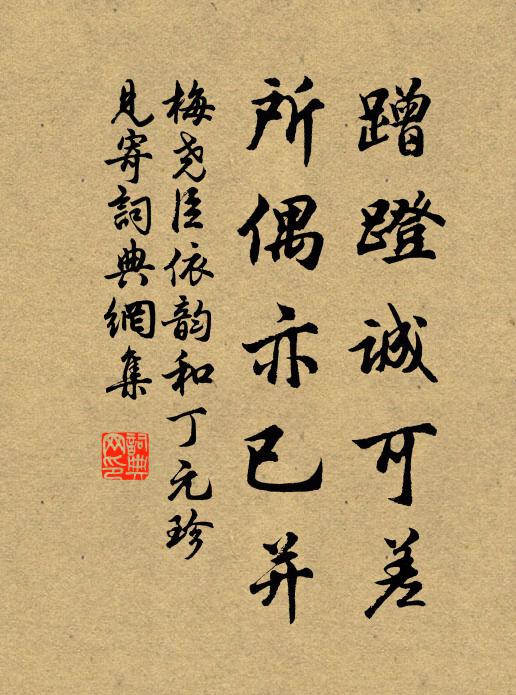 蹭蹬誠可差
所偶亦已并
梅尧臣依韵和丁元珍
見寄詞典網集
詞典网印